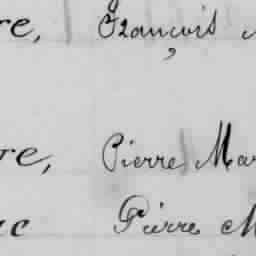 re, François
re, Pierre Mar
re Pierre M